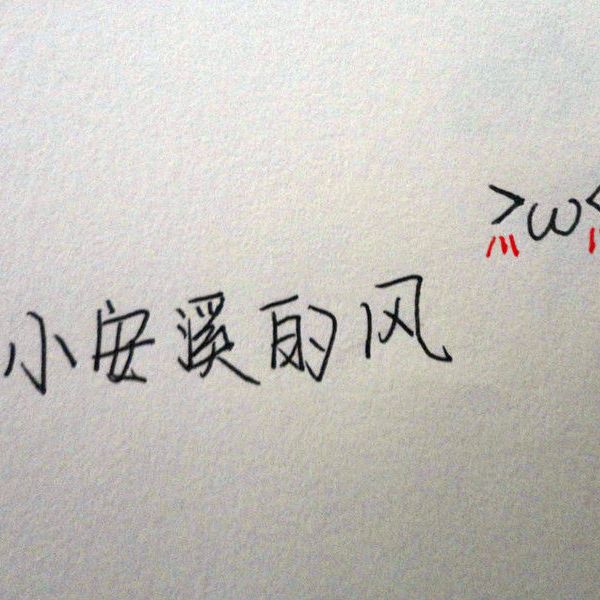 >ω<
小安溪的风